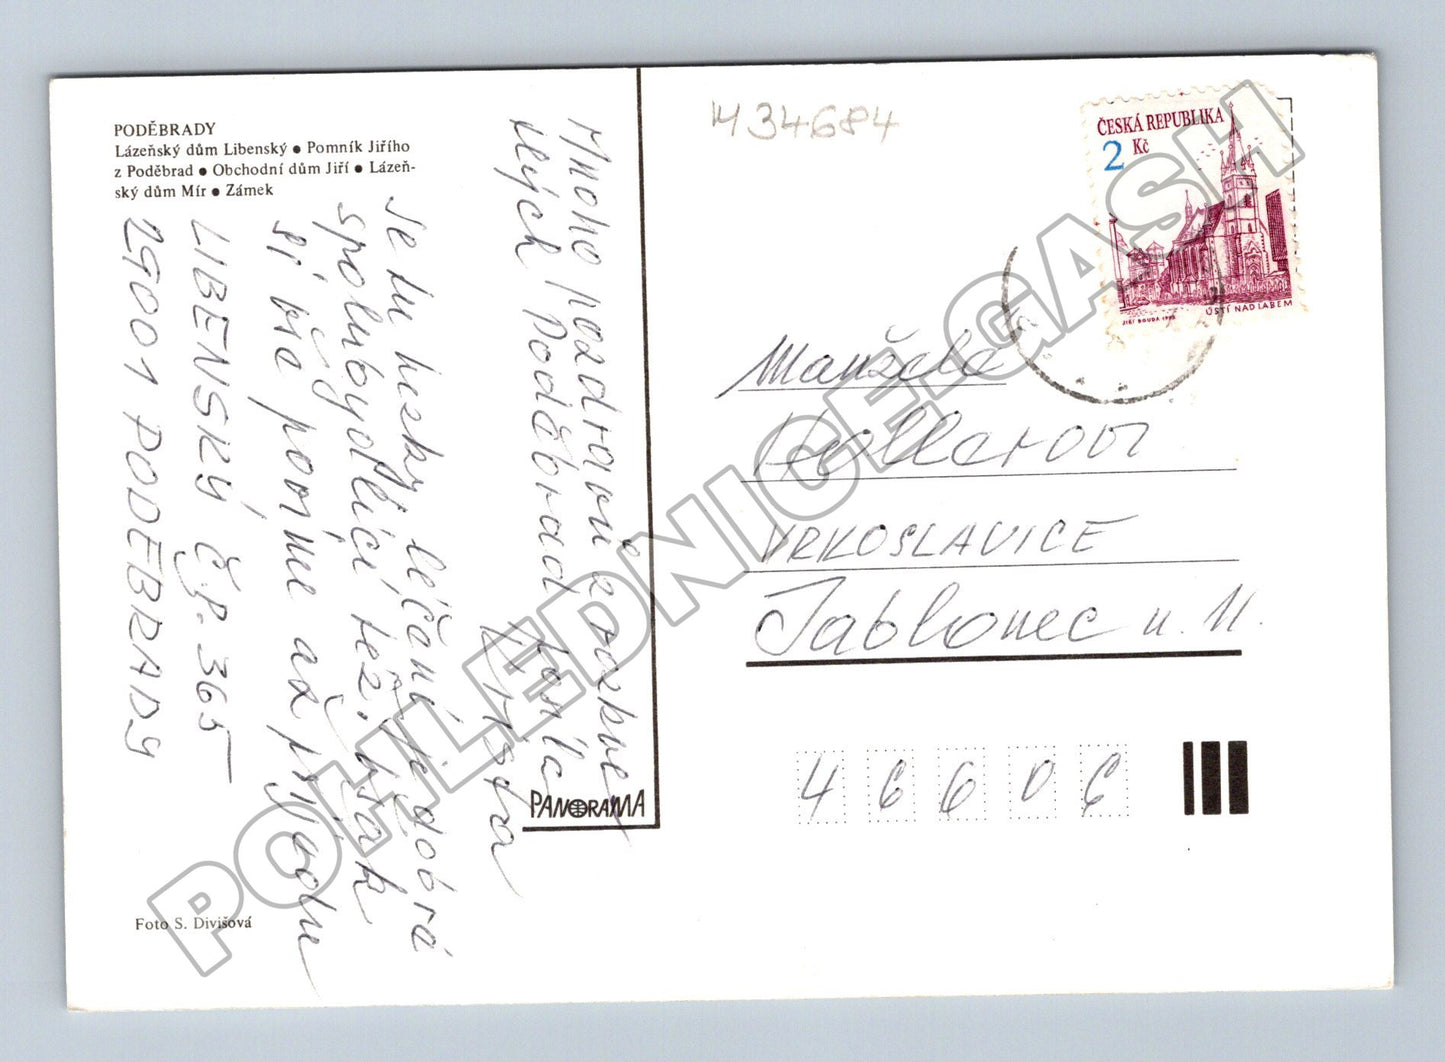 PODĚBRADY
Lázeňský dům Libenský ● Pomník Jiřího
z Poděbrad ● Obchodní dům Jiří ● Lázeň-
ský dům Mír ● Zámek
Mnoho pozdravů z
Poděbrad
Je tu hezky, léčení je dobrá
spolubydlící též. Však
si vše povíme až přijedu
LIBENSKÝ Č.P. 365
29001 PODEBRADY
Foto S. Divišová
PANORAMA
M34684
ČESKÁ REPUBLIKA
2 Kč
JIŘÍ BOUDA 1993
ÚSTÍ NAD LABEM
Manželé
Hollerovi
VRKOSLAVICE
Jablonec n. N.
46606
POHLEDNICE.GASH